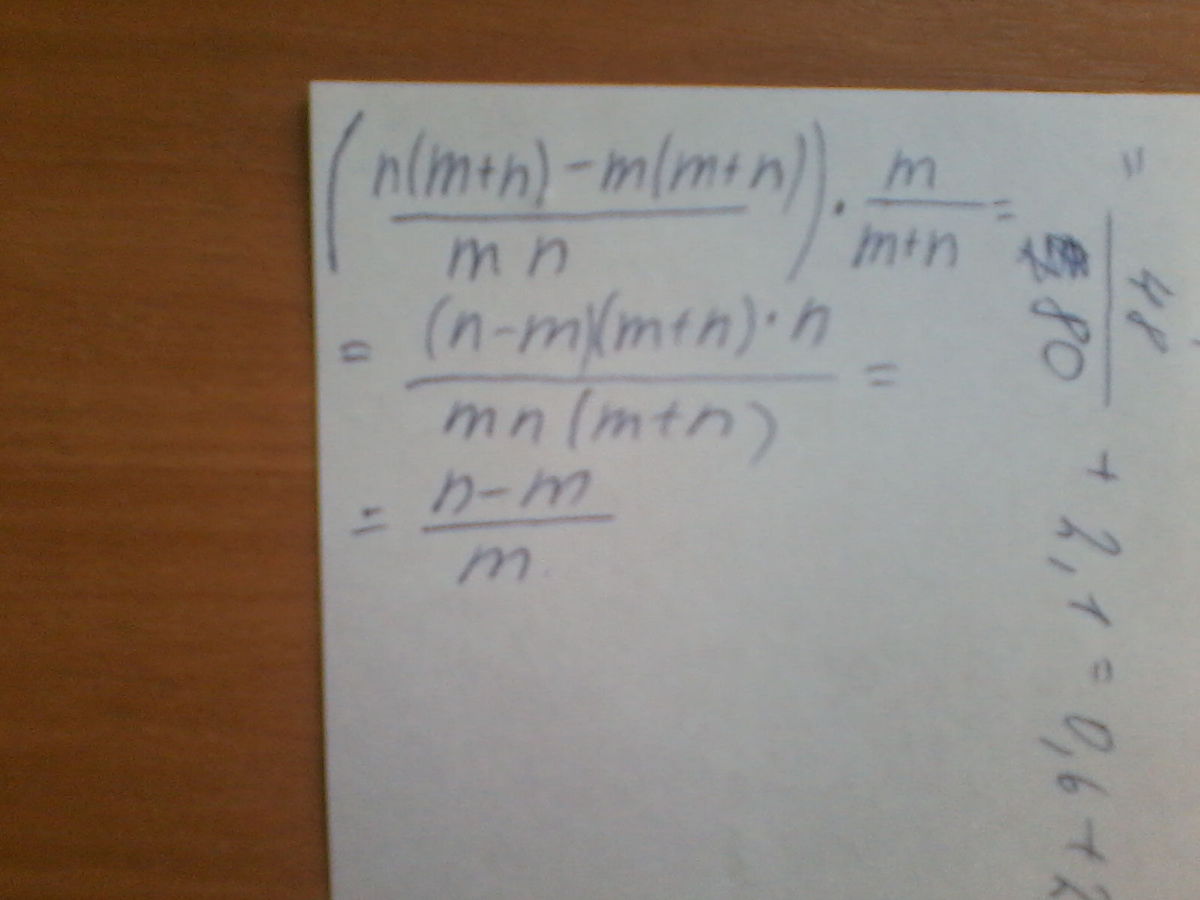 (n(m+n)-m(m+n))/(mn) · m/(m+n) =
= ((n-m)(m+n)·n)/(mn(m+n)) =
= (n-m)/m
= 48/80 + 2,1 = 0,6 + 2